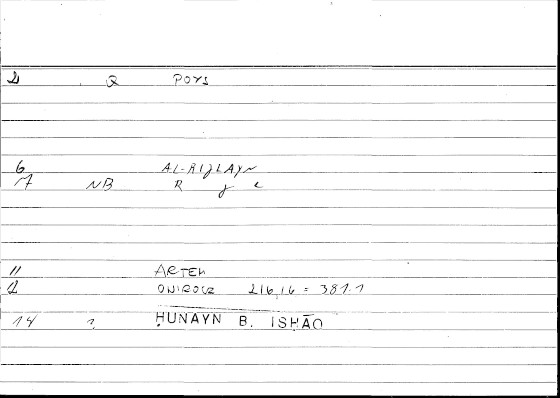 2 Q POYS
6 AL-RIJLAYN
7 NB R J L
11 ARTEM
2 ONIROCR 216,16 = 387.1
14 ? ḤUNAYN B. ISḤĀQ